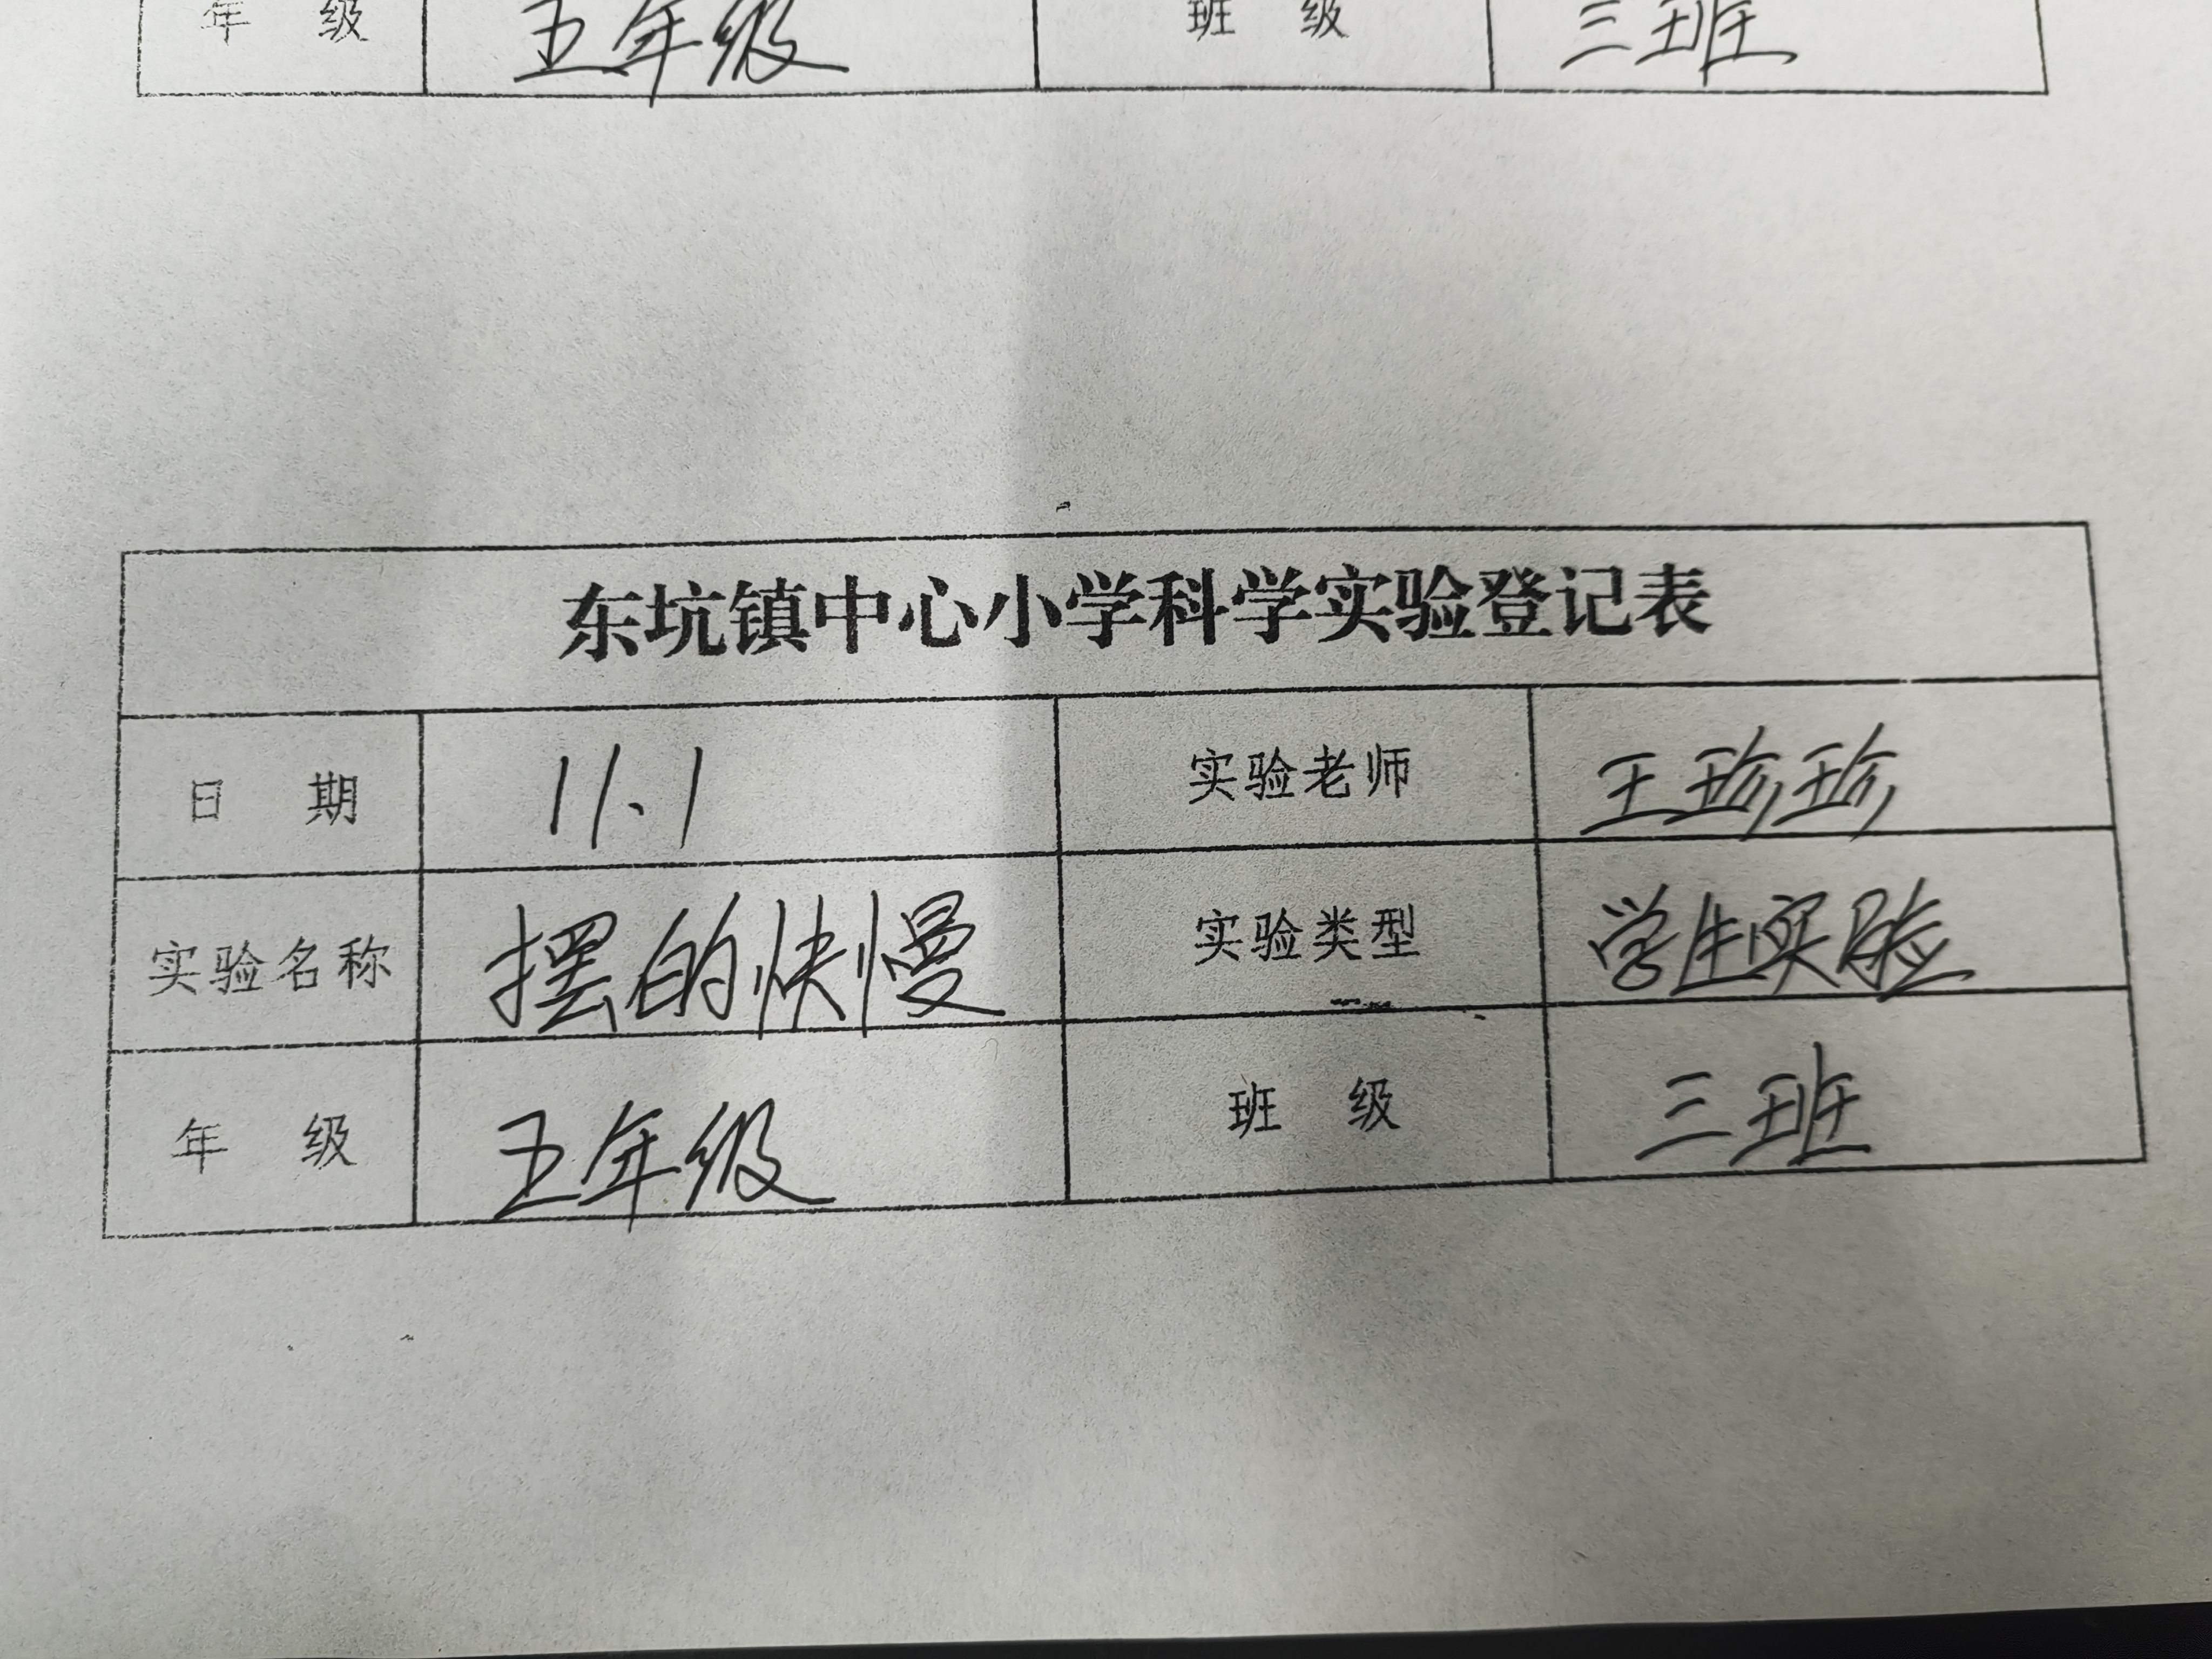 年 级 五年级 班 级 三班
东坑镇中心小学科学实验登记表
日 期 11.1 实验老师 王珍珍
实验名称 摆的快慢 实验类型 学生实验
年 级 五年级 班 级 三班